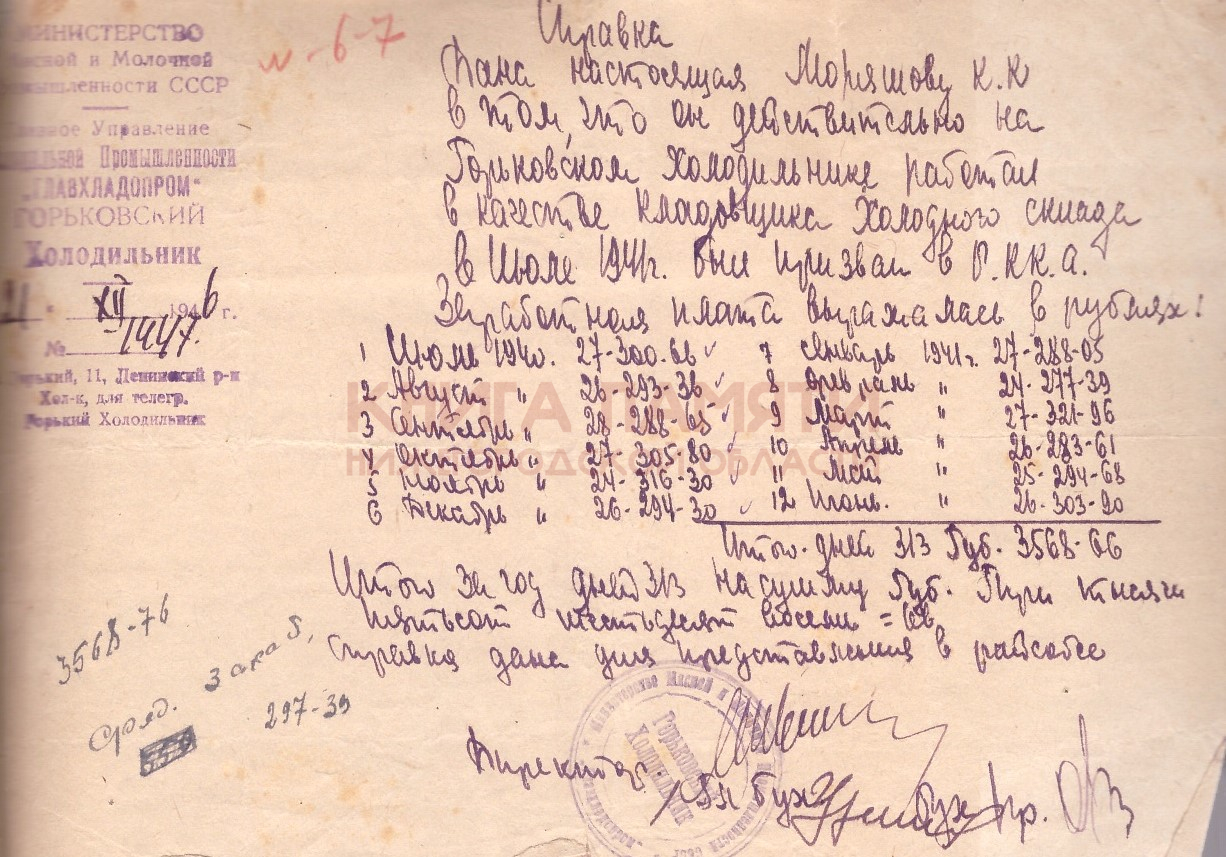 МИНИСТЕРСТВО
Мясной и Молочной
Промышленности СССР
Главное Управление
Холодильной Промышленности
"ГЛАВХЛАДОПРОМ"
ГОРЬКОВСКИЙ
Холодильник
XII 1946 г.
№ 1447.
Горький, 11, Ленинский р-н
Хол-к, для телегр.
Горький Холодильник
№-6-7
Справка
Дана настоящая Моряшову К.К
в том, что он действительно на
Горьковском холодильнике работал
в качестве кладовщика Холодного склада
в Июле 1941г. был призван в Р.К.К.А.
Заработная плата выражалась в рублях:
1 Июль 1940. 27-300.66 7 Январь 1941г. 27-288-05
2 Август " 26-293-36 8 Февраль " 24-277-39
3 Сентябрь " 28-288-65 9 Март " 27-321-96
4 Октябрь " 27-305-80 10 Апрель " 26-283-61
5 Ноябрь " 24-316-30 11 Май " 25-294-68
6 Декабрь " 26-294-30 12 Июнь. " 26-303-90
Итого-дней 313 Руб. 3568-66
Итого за год дней 313 на сумму Руб. Три тысячи
пятьсот шестьдесят восемь = 66
справка дана для представления в райсобес
3568-76
Сред. зараб.
297-39
Директор
Бух
КНИГА ПАМЯТИ
НИЖЕГОРОДСКОЙ ОБЛАСТИ
Горьковский
Холодильник